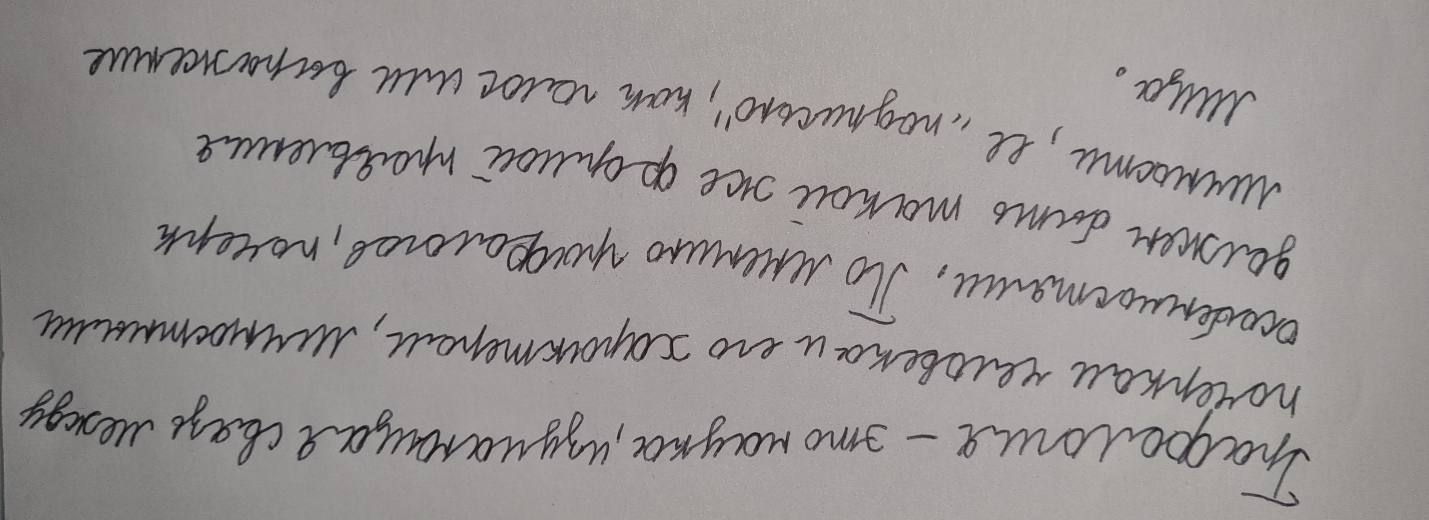 Графология – это наука, изучающая связь между
почерком человека и его характером, личностными
особенностями. По мнению графологов, почерк
должен быть такой же формой проявления
личности, её „подписью", как голос или выражение
лица.